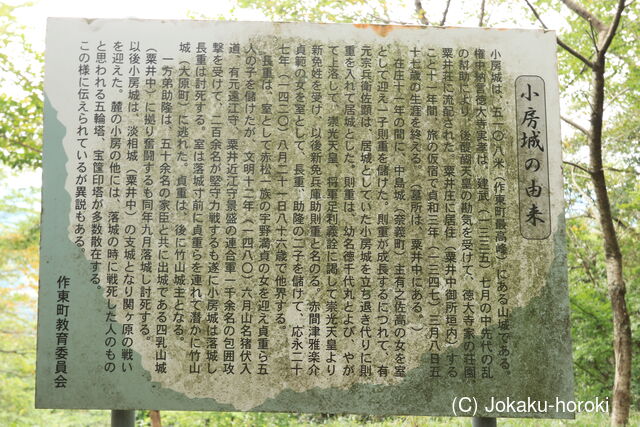 小房城の由来
小房城は、五一〇・八米（作東町最高峰）にある山城である。
権中納言徳大寺実孝は、建武二（一三三五）七月の中先代の乱
の幇助により、後醍醐天皇の勅気を受けて、徳大寺家の荘園
粟井荘に流配された。粟井荘に居住（粟井中御所垣内）する
こと十一年間、旅の仮宿で貞和三年（一三四七）三月八日五
十七歳の生涯を終える。（墓所は、粟井中にある。）
在庄十一年の間に、中島城（奈義町）主有之佐高の女を室
として迎え一子則重を儲けた。則重が成長するにつれて、有
元宗兵衛佐高は、居城としていた小房城を立ち退き代りに則
重を入れて居城とした。則重は、幼名徳千代丸とよび、やが
て上落して、崇光天皇、将軍足利義詮に謁して崇光天皇より
新免姓を受け、以後新免兵庫助則重と名のる。赤間津雅楽介
貞範の女を室として、長重、助隆の二子を儲けて、応永二十
七年（一四二〇）八月二十一日八十六歳で他界する。
長重は、室として赤松一族の宇野満貞の女を迎え貞重ら五
人の子を儲けたが、文明十二年（一四八〇）六月山名猪伏入
道、有元遠江守、粟井近江守景盛の連合軍一千余名の包囲攻
撃を受けて、二百余名が堅守力戦するも遂に小房城は落城し
長重は討死する。室は落城寸前に貞重らを連れて潜かに竹山
城（大原町）に逃れた。貞重は、後に竹山城主となる。
一方弟助隆は、五十余名の家臣と共に出城である四乳山城
（粟井中）に拠り奮闘するも同年九月落城し討死する。
以後小房城は、淡相城（粟井中）の支城となり関ヶ原の戦い
を迎えた。麓の小房の他には、落城の時に戦死した人のもの
と思われる五輪塔、宝篋印塔が多数散在する。
この様に伝えられているが異説もある。
作東町教育委員会
(C) Jokaku-horou.jp